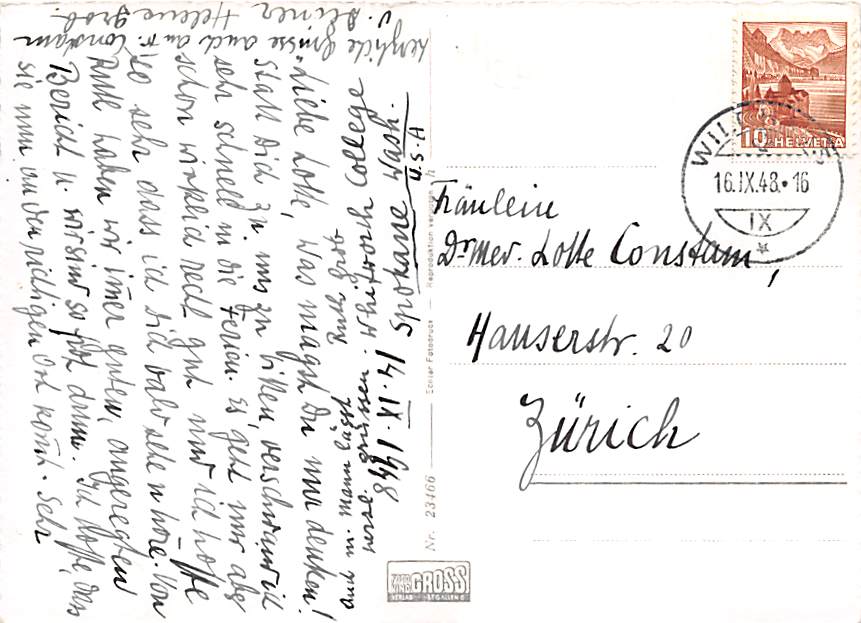 14. IX. 1948
Liebe Lotte, was magst Du nur denken!
Statt Dich zu uns zu bitten, verschwand ich
sehr schnell in die Ferien. Es geht mir aber
schon wirklich recht gut und ich hoffe
so sehr dass ich Dich bald sehe u höre. Von
Ruth haben wir immer guten, angeregten
Bericht u. wir sind so froh drum. Ich hoffe, dass
sie nun an den richtigen Ort kommt. Sehr
herzliche Grüsse auch an Fr. Constam
v. Deiner Helene Grob.
auch m. Mann lässt
herzl. grüssen.
Ruth Grob
Whitworth College
Spokane Wash.
U.S.A
Nr. 23466 — Echter Fotodruck — Reproduktion verboten
GROSS
VERLAG ST. GALLEN
HELVETIA
10
16.IX.48.-16
IX
Fräulein
Dr. Med. Lotte Constam,
Hauserstr. 20
Zürich